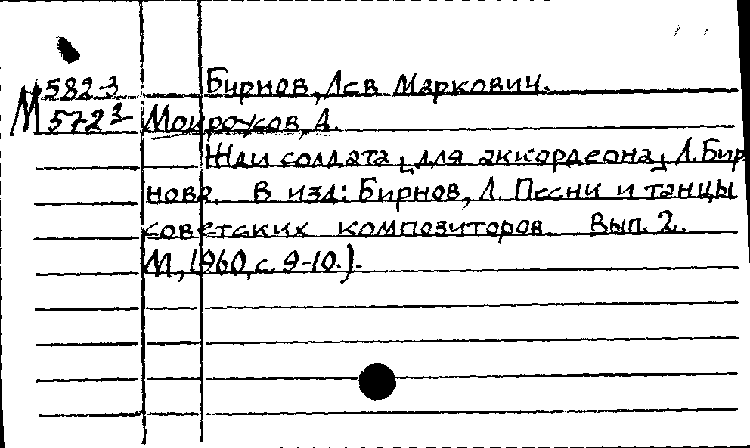 М 582-3 Бирнов, Лев Маркович.
572 3- Мокроусов, А.
Жди солдата [для аккордеона] Л. Бир
нова. В изд: Бирнов, Л. Песни и танцы
советских композиторов. Вып. 2.
М, 1960, с. 9-10.).